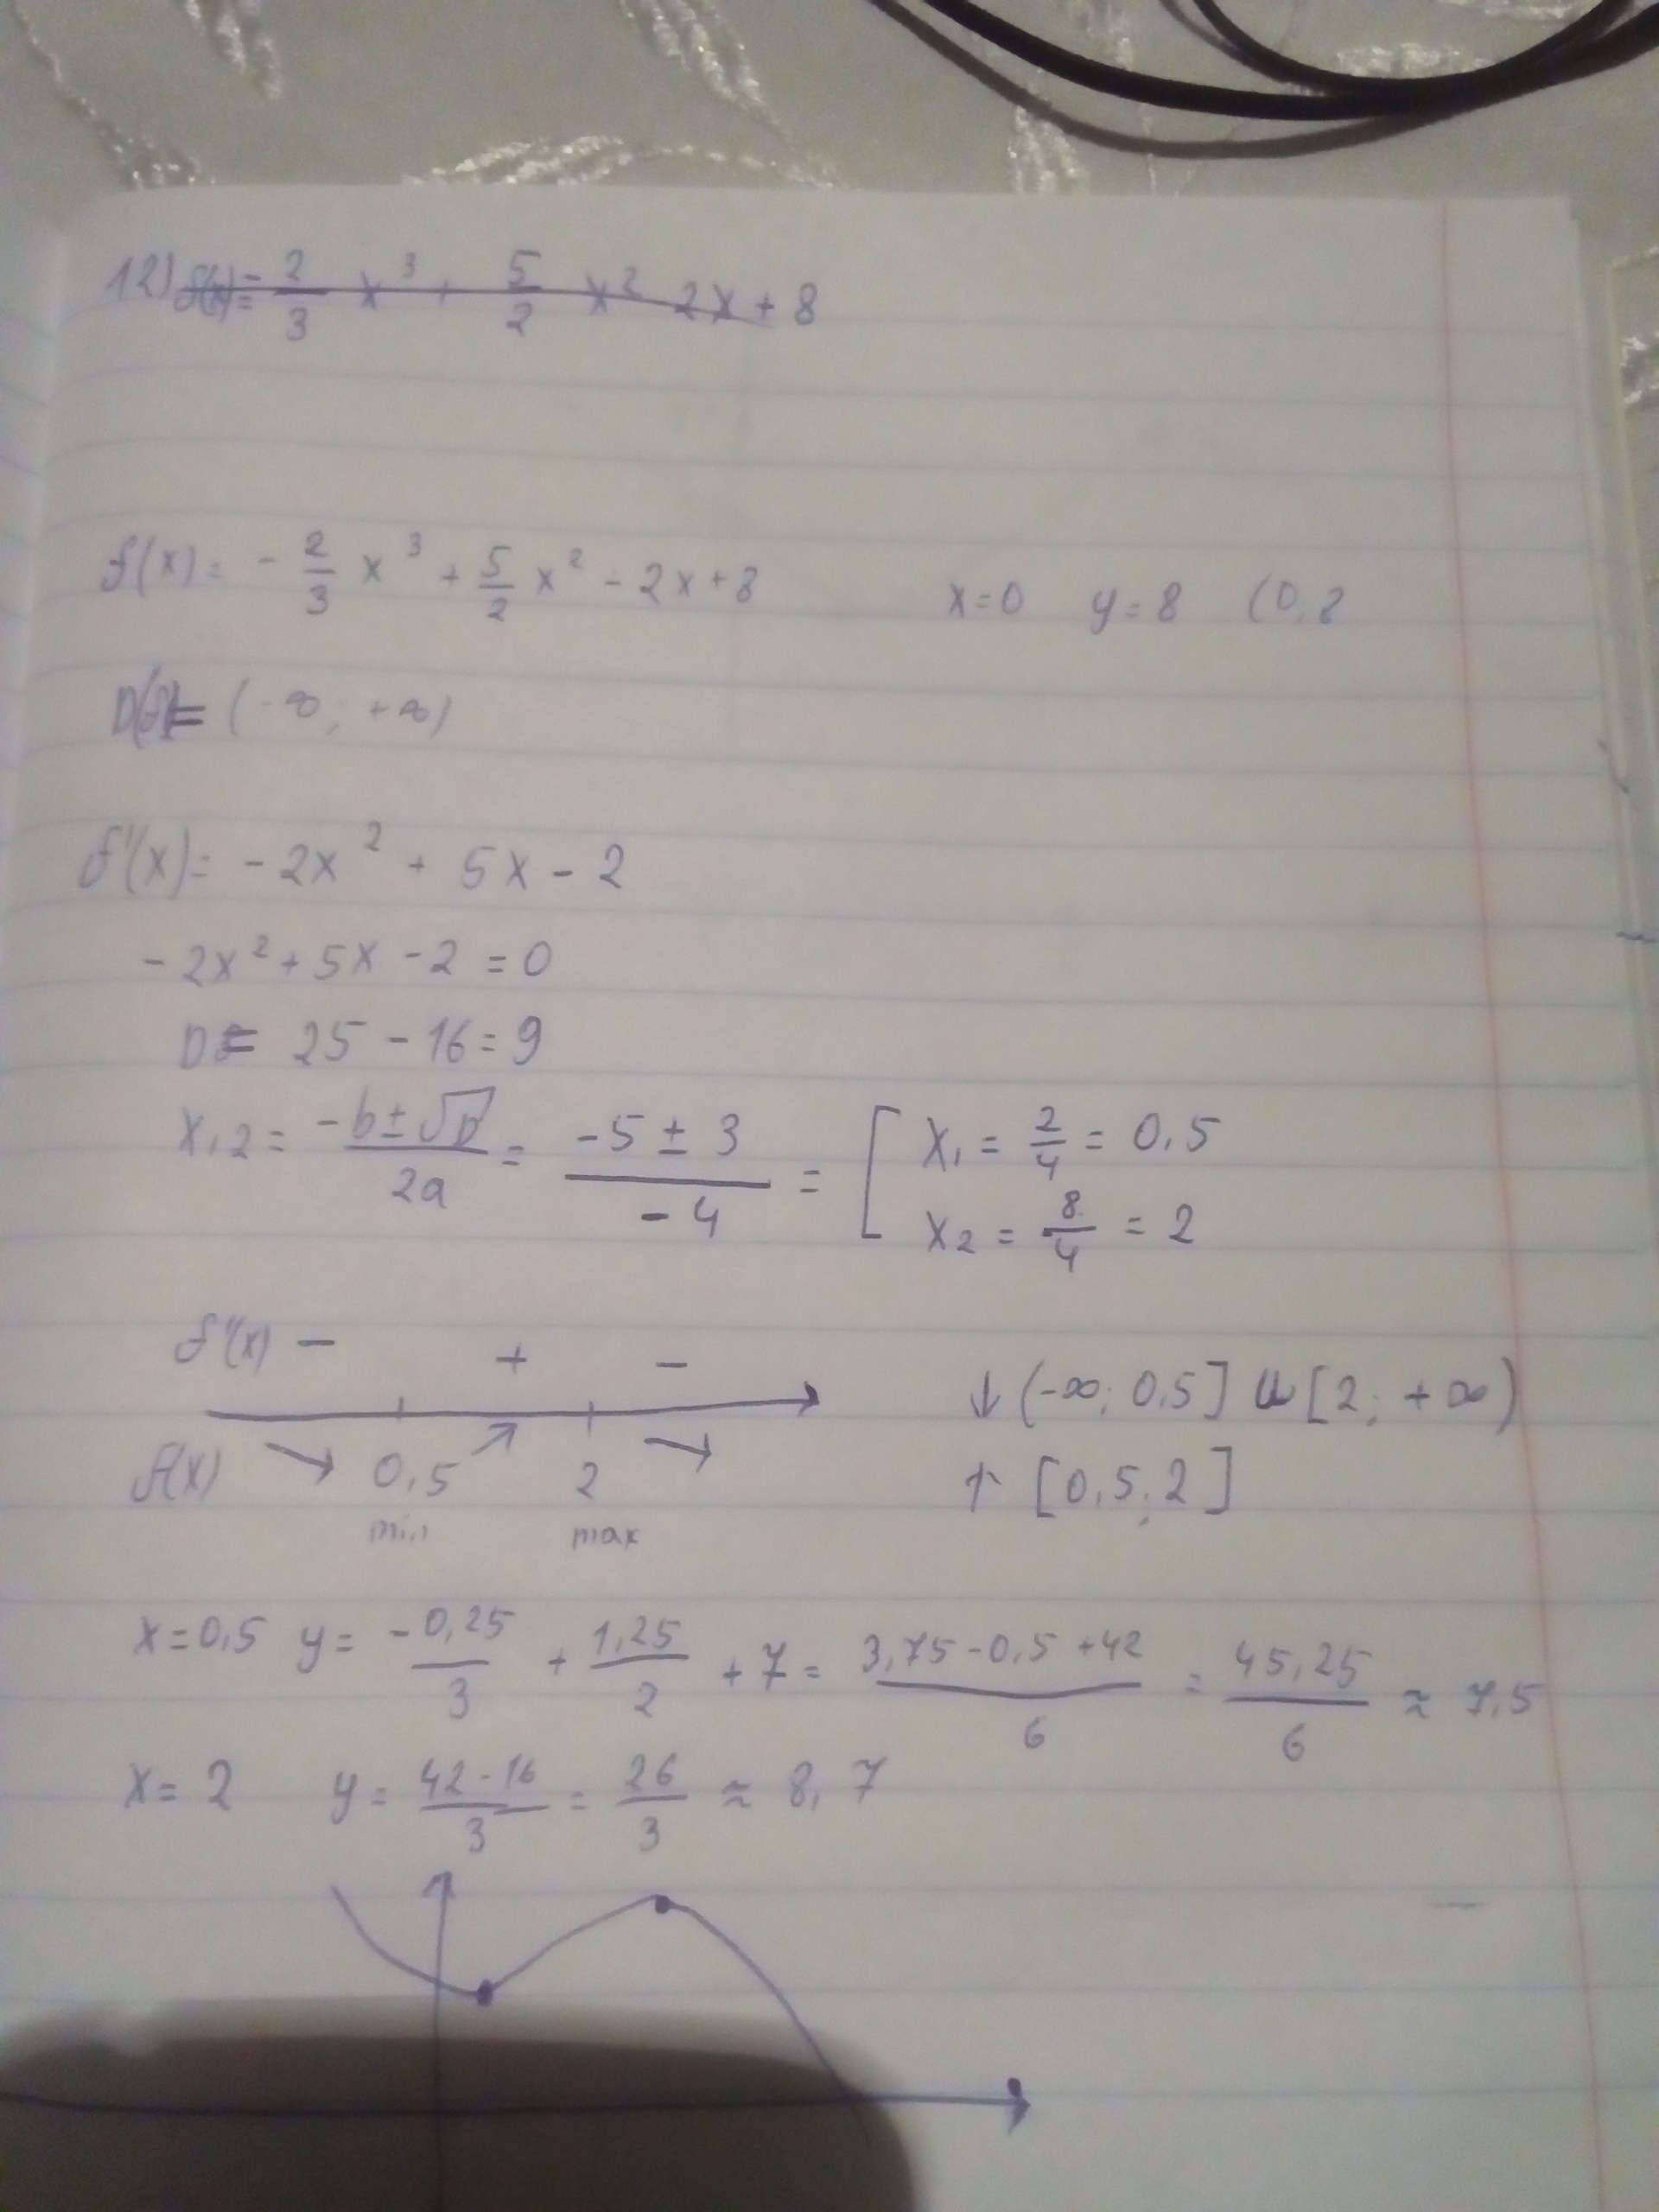 12) f(x)= -2/3 x³ + 5/2 x² 2x + 8
f(x)= - 2/3 x³ + 5/2 x² - 2x + 8 x=0 y=8 (0,8
D(f)= (-∞; +∞)
f'(x)= -2x² + 5x - 2
-2x² + 5x - 2 = 0
D= 25 - 16 = 9
x₁,₂ = (-b±√D)/2a = (-5 ± 3)/-4 = [ x₁ = 2/4 = 0,5
x₂ = 8/4 = 2
f'(x) - + -
↓ (-∞; 0,5] u [2; +∞)
f(x) ↘ 0,5 ↗ 2 ↘
↑ [0,5; 2]
min max
x=0,5 y= -0,25/3 + 1,25/2 + 7 = (3,75 - 0,5 + 42)/6 = 45,25/6 ≈ 7,5
x= 2 y= (42 - 16)/3 = 26/3 ≈ 8,7